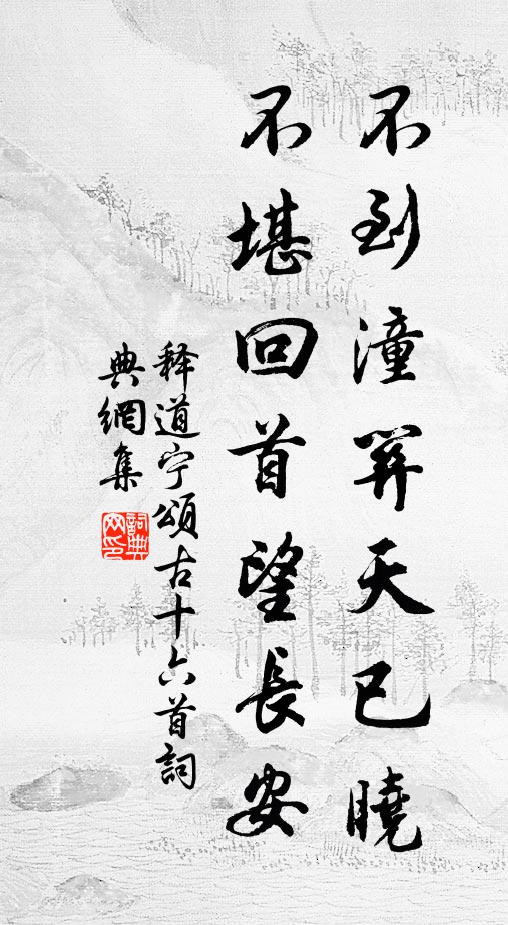 不到潼關天已曉
不堪回首望長安
释道宁頌古十六首詞
典網集
詞典
网印